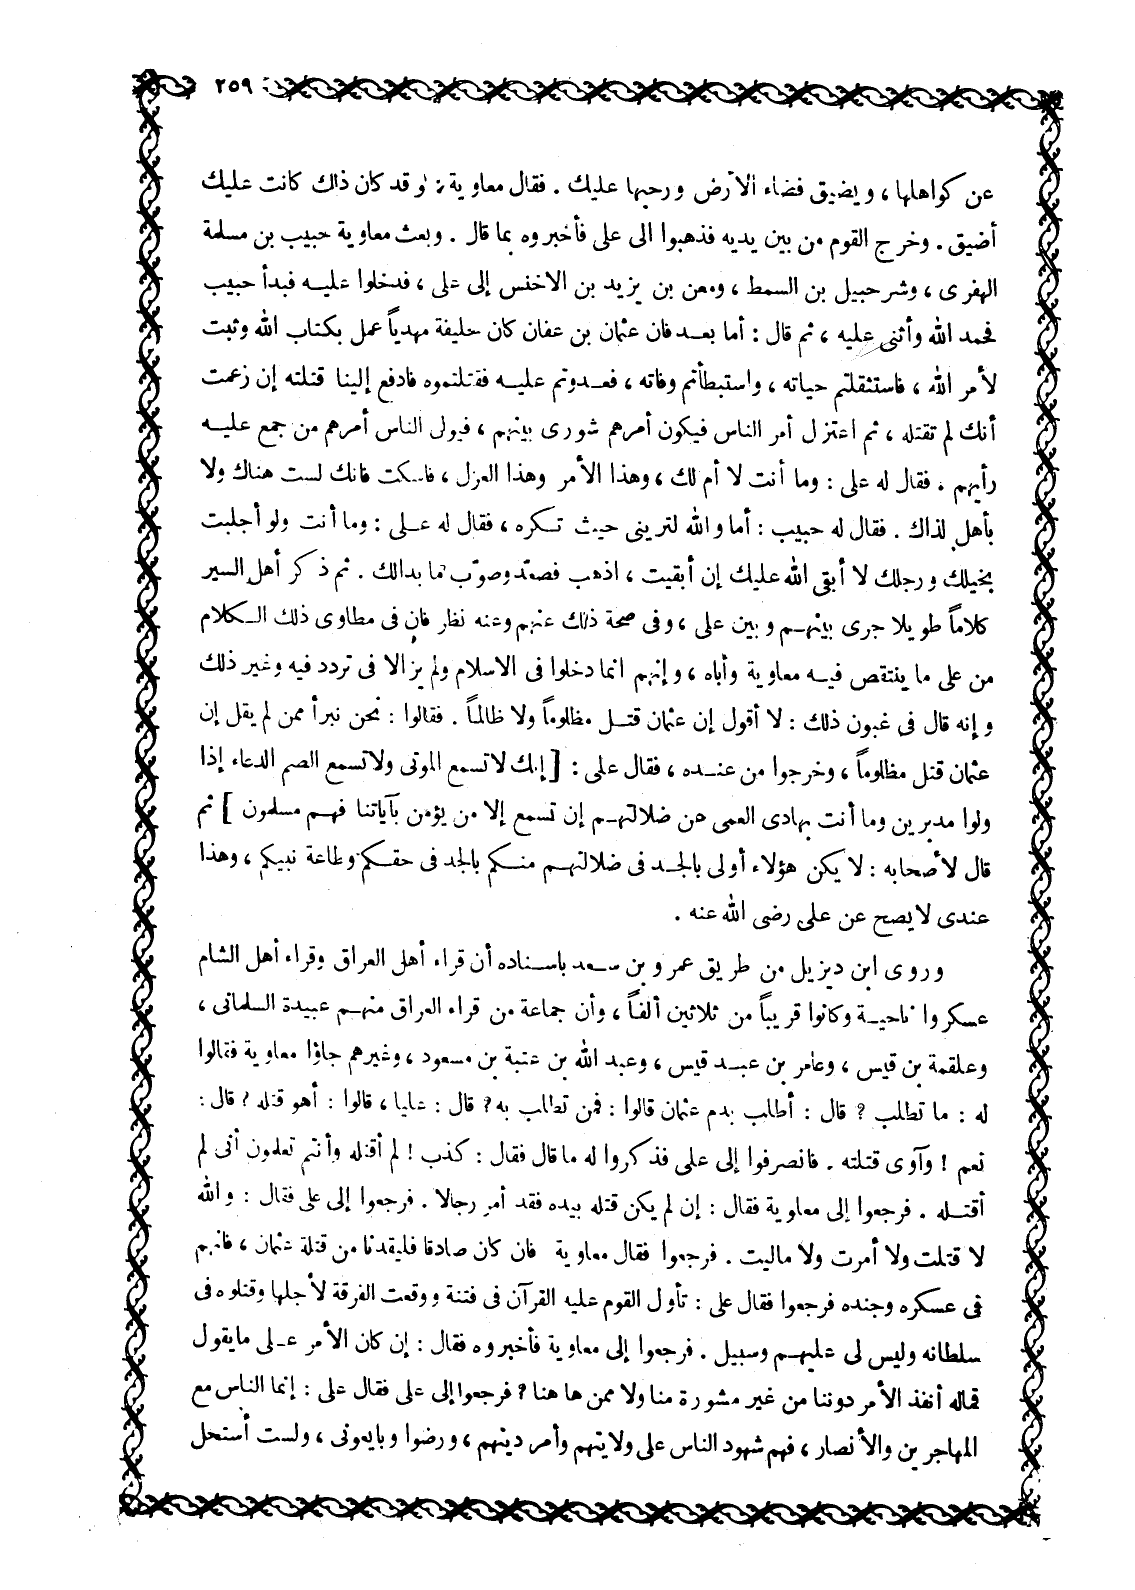 ٢٥٩
عن كواهلها ، ويضيق فضاء الأرض ورحبها عليك . فقال معاوية : لو قد كان ذاك كانت عليك
أضيق . وخرج القوم من بين يديه فذهبوا الى على فأخبروه بما قال . وبعث معاوية حبيب بن مسلمة
الفهرى ، وشرحبيل بن السمط ، ومعن بن يزيد بن الاخنس إلى على ، فدخلوا عليه فبدأ حبيب
فحمد الله وأثنى عليه ، ثم قال : أما بعد فان عثمان بن عفان كان خليفة مهدياً عمل بكتاب الله وثبت
لأمر الله ، فاستثقلتم حياته ، واستبطأتم وفاته ، فعدوتم عليه فقتلتموه فادفع إلينا قتلته إن زعمت
أنك لم تقتله ، ثم اعتزل أمر الناس فيكون أمرهم شورى بينهم ، فيولى الناس أمرهم من جمع عليه
رأيهم . فقال له على : وما أنت لا أم لك ، وهذا الأمر وهذا العزل ، فاسكت فانك لست هناك ولا
بأهل لذاك . فقال له حبيب : أما والله لترينى حيث تكره ، فقال له على : وما أنت ولو أجلبت
بخيلك ورجلك لا أبقى الله عليك إن أبقيت ، اذهب فصعد وصوب ما بدالك . ثم ذكر أهل السير
كلاماً طويلا جرى بينهم وبين على ، وفى صحة ذلك عنهم وعنه نظر فان فى مطاوى ذلك الكلام
من على ما ينتقص فيه معاوية وأباه ، وإنهم انما دخلوا فى الاسلام ولم يزالا فى تردد فيه وغير ذلك
وإنه قال فى غبون ذلك : لا أقول إن عثمان قتل مظلوماً ولا ظالماً . فقالوا : نحن نبرأ ممن لم يقل إن
عثمان قتل مظلوماً ، وخرجوا من عنده ، فقال على : [ إنك لا تسمع الموتى ولا تسمع الصم الدعاء إذا
ولوا مدبرين وما أنت بهادى العمى عن ضلالتهم إن تسمع إلا من يؤمن بآياتنا فهم مسلمون ] ثم
قال لأصحابه : لا يكن هؤلاء أولى بالجد فى ضلالتهم منكم بالجد فى حقكم وطاعة نبيكم ، وهذا
عندى لا يصح عن على رضى الله عنه .
وروى ابن ديزيل من طريق عمرو بن سعد باسناده أن قراء أهل العراق وقراء أهل الشام
عسكروا ناحية وكانوا قريباً من ثلاثين ألفاً ، وأن جماعة من قراء العراق منهم عبيدة السلمانى ،
وعلقمة بن قيس ، وعامر بن عبد قيس ، وعبد الله بن عتبة بن مسعود ، وغيرهم جاؤا معاوية فقالوا
له : ما تطلب ؟ قال : أطلب بدم عثمان قالوا : فمن تطلب به ؟ قال : عليا ، قالوا : أهو قتله ؟ قال :
نعم ! وآوى قتلته . فانصرفوا إلى على فذكروا له ما قال فقال : كذب ! لم أقتله وأنتم تعلمون أنى لم
أقتله . فرجعوا إلى معاوية فقال : إن لم يكن قتله بيده فقد أمر رجالا . فرجعوا إلى على فقال : والله
لا قتلت ولا أمرت ولا ماليت . فرجعوا فقال معاوية فان كان صادقا فليقدنا من قتلة عثمان ، فانهم
فى عسكره وجنده فرجعوا فقال على : تأول القوم عليه القرآن فى فتنة ووقعت الفرقة لأجلها وقتلوه فى
سلطانه وليس لى عليهم وسبيل . فرجعوا إلى معاوية فأخبروه فقال : إن كان الأمر على ما يقول
فماله أنفذ الأمر دوننا من غير مشورة منا ولا ممن ها هنا ؟ فرجعوا إلى على فقال على : إنما الناس مع
المهاجرين والأنصار ، فهم شهود الناس على ولايتهم وأمر دينهم ، ورضوا وبايعونى ، ولست أستحل